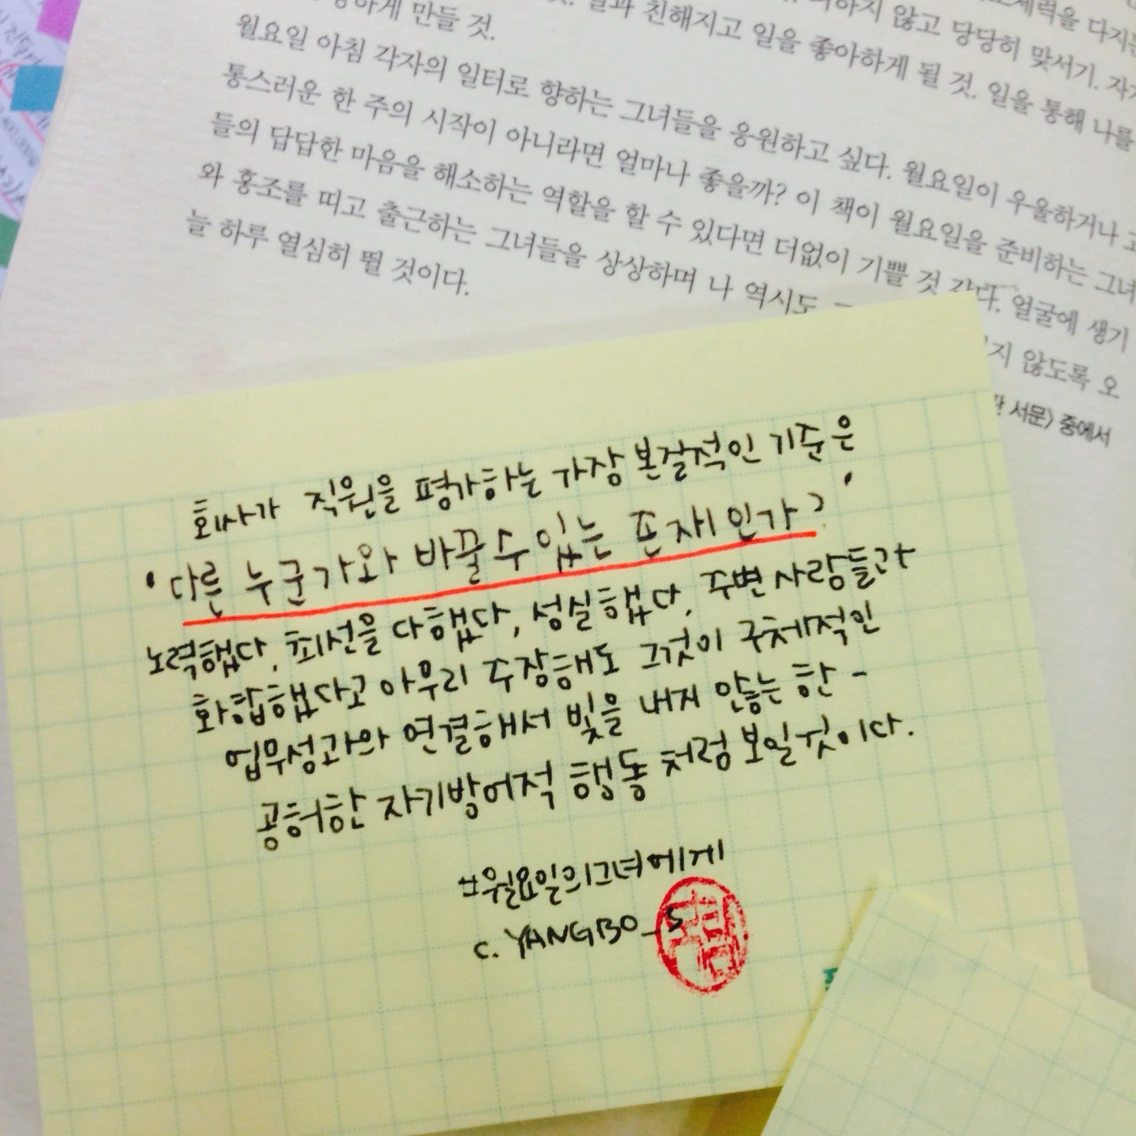 하게 만들 것.
과 친해지고 일을 좋아하게 될 것. 일을 통해 나를
하지 않고 당당히 맞서기.
체력을 다지는
월요일 아침 각자의 일터로 향하는 그녀들을 응원하고 싶다. 월요일이 우울하거나 고
통스러운 한 주의 시작이 아니라면 얼마나 좋을까? 이 책이 월요일을 준비하는 그녀
들의 답답한 마음을 해소하는 역할을 할 수 있다면 더없이 기쁠 것 같다. 얼굴에 생기
와 홍조를 띠고 출근하는 그녀들을 상상하며 나 역시도 지 않도록 오
늘 하루 열심히 뛸 것이다.
서문〉 중에서
회사가 직원을 평가하는 가장 본질적인 기준은
'다른 누군가와 바꿀 수 있는 존재인가?'
노력했다, 최선을 다했다, 성실했다, 주변 사람들과
화합했다고 아무리 주장해도 그것이 구체적인
업무성과와 연결해서 빛을 내지 않는 한 -
공허한 자기방어적 행동처럼 보일것이다.
#월요일의그녀에게
c. YANGBO_S